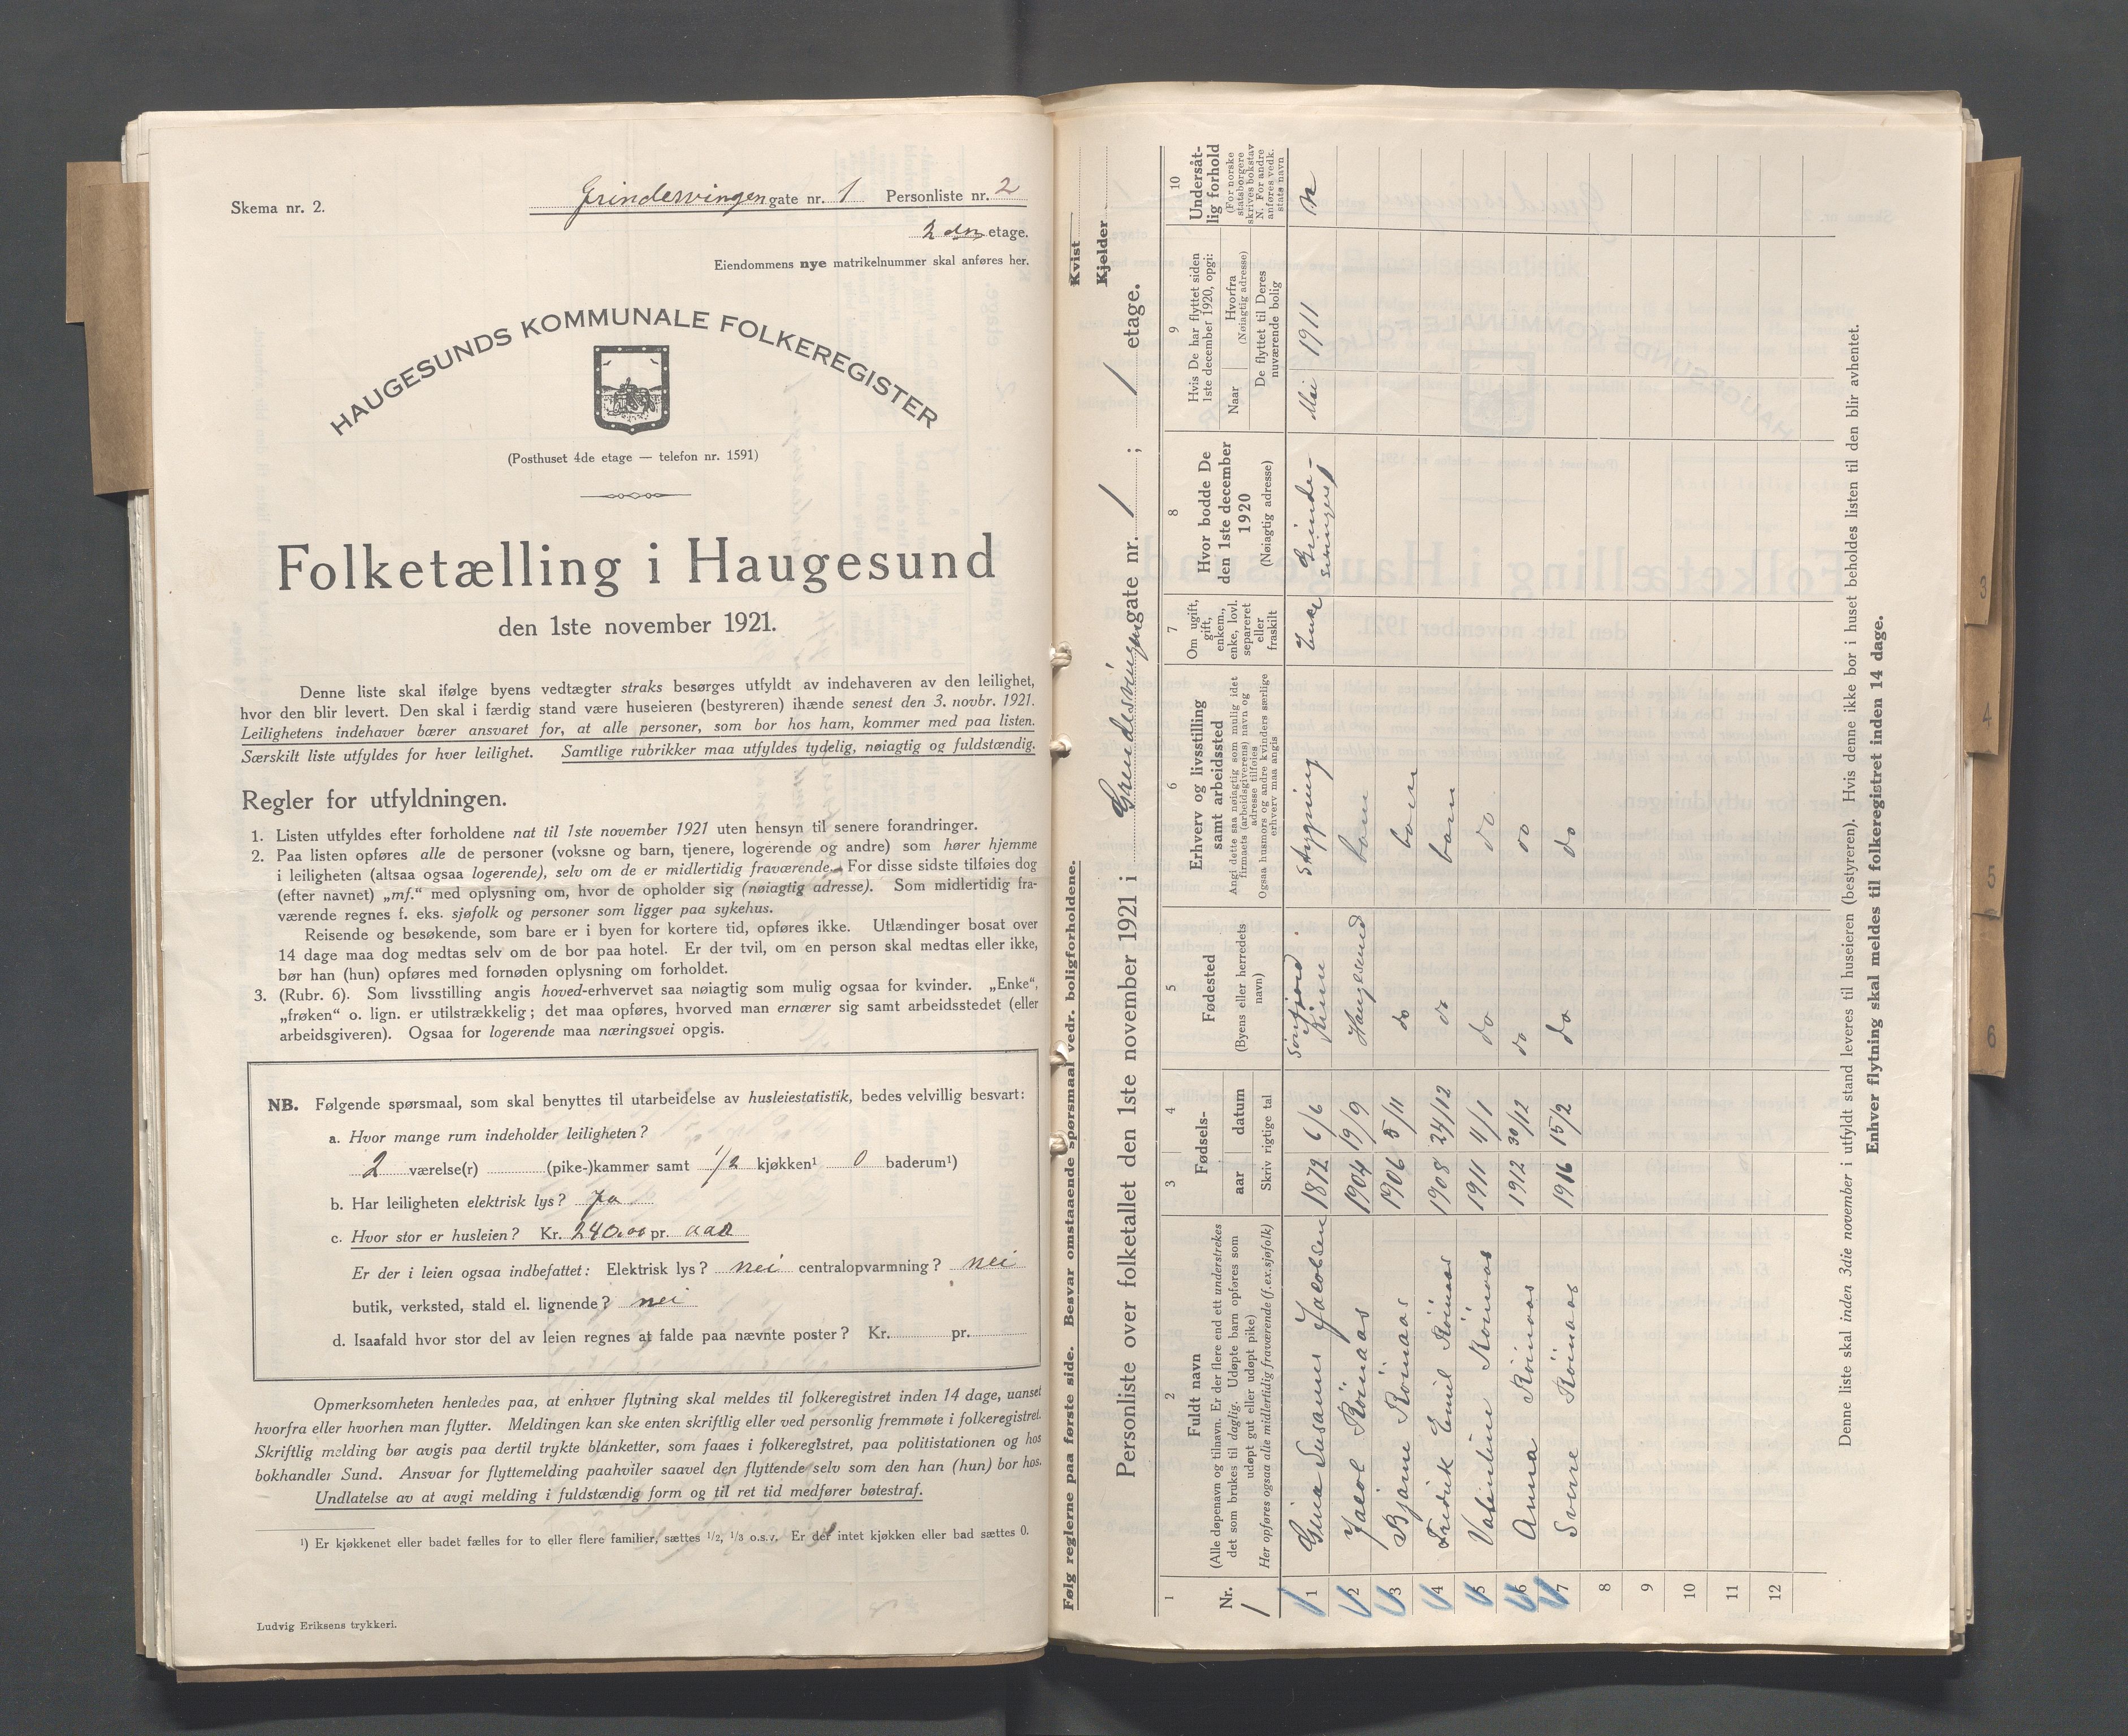 Skema nr. 2.
Grindesvingen gate nr. 1 Personliste nr. 2
2 den etage.
Eiendommens nye matrikelnummer skal anføres her.
HAUGESUNDS KOMMUNALE FOLKEREGISTER
(Posthuset 4de etage — telefon nr. 1591)
Folketælling i Haugesund
den 1ste november 1921.
Denne liste skal ifølge byens vedtægter straks besørges utfyldt av indehaveren av den leilighet,
hvor den blir levert. Den skal i færdig stand være huseieren (bestyreren) ihænde senest den 3. novbr. 1921.
Leilighetens indehaver bærer ansvaret for, at alle personer, som bor hos ham, kommer med paa listen.
Særskilt liste utfyldes for hver leilighet. Samtlige rubrikker maa utfyldes tydelig, nøiagtig og fuldstændig.
Regler for utfyldningen.
1. Listen utfyldes efter forholdene nat til 1ste november 1921 uten hensyn til senere forandringer.
2. Paa listen opføres alle de personer (voksne og barn, tjenere, logerende og andre) som hører hjemme
i leiligheten (altsaa ogsaa logerende), selv om de er midlertidig fraværende. For disse sidste tilføies dog
(efter navnet) „mf.“ med oplysning om, hvor de opholder sig (nøiagtig adresse). Som midlertidig fra-
værende regnes f. eks. sjøfolk og personer som ligger paa sykehus.
Reisende og besøkende, som bare er i byen for kortere tid, opføres ikke. Utlændinger bosat over
14 dage maa dog medtas selv om de bor paa hotel. Er der tvil, om en person skal medtas eller ikke,
bør han (hun) opføres med fornøden oplysning om forholdet.
3. (Rubr. 6). Som livsstilling angis hoved-erhvervet saa nøiagtig som mulig ogsaa for kvinder. „Enke“,
„frøken“ o. lign. er utilstrækkelig; det maa opføres, hvorved man ernærer sig samt arbeidsstedet (eller
arbeidsgiveren). Ogsaa for logerende maa næringsvei opgis.
NB. Følgende spørsmaal, som skal benyttes til utarbeidelse av husleiestatistik, bedes velvillig besvart:
a. Hvor mange rum indeholder leiligheten?
2 værelse(r) (pike-)kammer samt 1/2 kjøkken¹ 0 baderum¹)
b. Har leiligheten elektrisk lys? Ja
c. Hvor stor er husleien? Kr. 240.00 pr. aar
Er der i leien ogsaa indbefattet: Elektrisk lys? nei centralopvarmning? nei
butik, verksted, stald el. lignende? nei
d. Isaafald hvor stor del av leien regnes at falde paa nævnte poster? Kr. pr.
Opmerksomheten henledes paa, at enhver flytning skal meldes til folkeregistret inden 14 dage, uanset
hvorfra eller hvorhen man flytter. Meldingen kan ske enten skriftlig eller ved personlig fremmøte i folkeregistret.
Skriftlig melding bør avgis paa dertil trykte blanketter, som faaes i folkeregistret, paa politistationen og hos
bokhandler Sund. Ansvar for flyttemelding paahviler saavel den flyttende selv som den han (hun) bor hos.
Undlatelse av at avgi melding i fuldstændig form og til ret tid medfører bøtestraf.
¹) Er kjøkkenet eller badet fælles for to eller flere familier, sættes 1/2, 1/3 o.s.v. Er der intet kjøkken eller bad sættes 0.
Ludvig Eriksens trykkeri.
Følg reglerne paa første side. Besvar omstaaende spørsmaal vedr. boligforholdene.
Kvist
Kjelder
Personliste over folketallet den 1ste november 1921 i Grindesvingen gate nr. 1 ; 1 etage.
1 2 3 4 5 6 7 8 9 10
Nr.
1
Fuldt navn
(Alle døpenavn og tilnavn. Er der flere end ett understrekes
det som brukes til daglig. Udøpte barn opføres som
udøpt gut eller udøpt pike)
Her opføres ogsaa alle midlertidig fraværende (f. ex. sjøfolk)
Fødsels-
aar datum
Skriv rigtige tal
Fødested
(Byens eller herredets
navn)
Erhverv og livsstilling
samt arbeidssted
Angi dette saa nøiagtig som mulig idet
firmaets (arbeidsgiverens) navn og
adresse tilføies
Ogsaa husmors og andre kvinders særlige
erhverv maa angis
Om ugift,
gift,
enkem.,
enke, lovl.
separeret
eller
fraskilt
Hvor bodde De
den 1ste december
1920
(Nøiagtig adresse)
Hvis De har flyttet siden
1ste december 1920, opgi:
Naar
Hvorfra
(Nøiagtig adresse)
De flyttet til Deres
nuværende bolig
Undersåt-
lig forhold
(For norske
statsborgere
skrives bokstav
N. For andre
anføres vedk.
stats navn
1 Gina Susanne Jacobsen 1872 6/6 Sönfjord Kinne Strygning Enke Grinde-svingen Mai 1911 N
2 Jacob Röinaas 1904 19/9 Haugesund barn
3 Bjarne Röinaas 1906 5/11 do barn
4 Fredrik Emil Röinaas 1908 24/12 do barn
5 Valentine Röinaas 1911 11/1 do do
6 Anna Röinaas 1912 30/12 do do
7 Sverre Röinaas 1916 15/2 do do
8
9
10
11
12
Denne liste skal inden 3die november i utfyldt stand leveres til huseieren (bestyreren). Hvis denne ikke bor i huset beholdes listen til den blir avhentet.
Enhver flytning skal meldes til folkeregistret inden 14 dage.
3
4
5
6